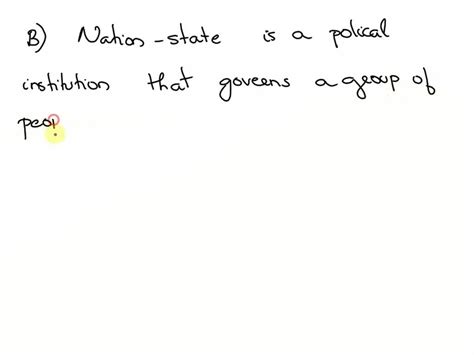 B) Nation-state is a polical
institution that goveens a group of
peop